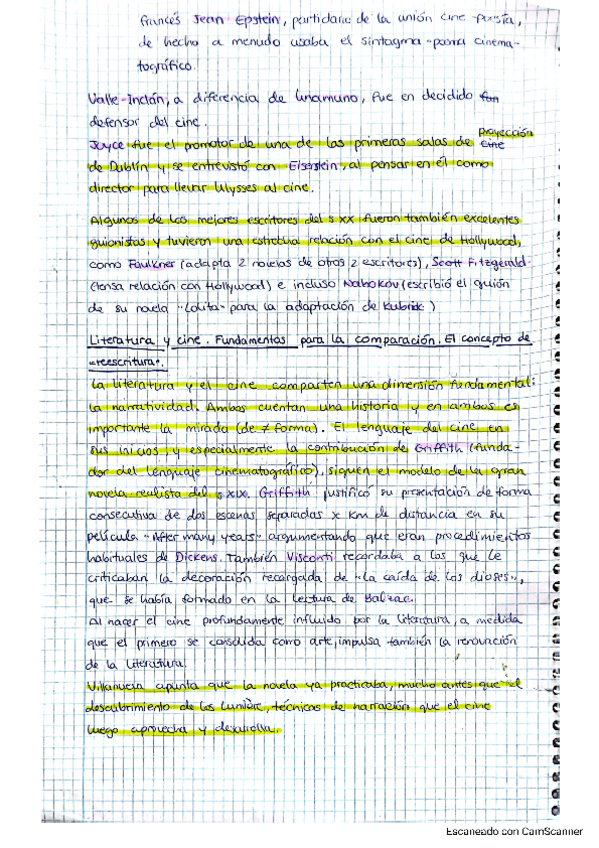 francés Jean Epstein, partidario de la unión cine-poesía,
de hecho a menudo usaba el sintagma "poema cinema-
tográfico.
Valle-Inclán, a diferencia de Unamuno, fue en decidido fan
defensor del cine.
Joyce fue el promotor de una de las primeras salas de cine proyección
de Dublín y se entrevistó con Eisenstein, al pensar en él como
director para llevar Ulysses al cine.
Algunos de los mejores escritores del s XX fueron también excelentes
guionistas y tuvieron una estrecha relación con el cine de Hollywood,
como Faulkner (adapta 2 novelas de otros 2 escritores), Scott Fitzgerald
(tensa relación con Hollywood) e incluso Nabokov (escribió el guión
de su novela "Lolita" para la adaptación de Kubrick)
Literatura y cine. Fundamentos para la comparación. El concepto de
"reescritura".
La literatura y el cine comparten una dimensión fundamental:
la narratividad. Ambos cuentan una historia y en ambos es
importante la mirada (de ≠ forma). El lenguaje del cine, en
sus inicios, y especialmente la contribución de Griffith (funda-
dor del lenguaje cinematográfico), siguen el modelo de la gran
novela realista del s XIX. Griffith justificó su presentación de forma
consecutiva de dos escenas separadas x km de distancia en su
película "After many years" argumentando que eran procedimientos
habituales de Dickens. También Visconti recordaba a los que le
criticaban la decoración recargada de "La caída de los dioses",
que se había formado en la lectura de Balzac.
Al nacer el cine profundamente influido por la literatura, a medida
que el primero se consolida como arte, impulsa también la renovación
de la literatura.
Villanueva apunta que la novela ya practicaba, mucho antes que el
descubrimiento de los Lumière, técnicas de narración que el cine
luego aprovecha y desarrolla.
Escaneado con CamScanner